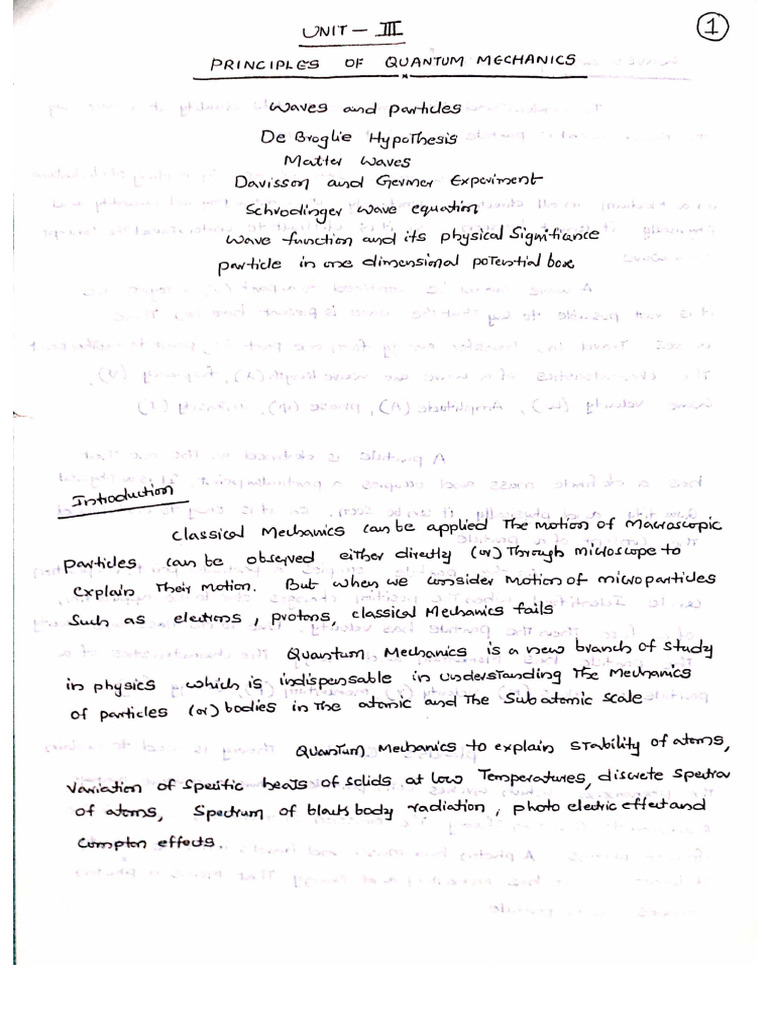 1
UNIT - III
PRINCIPLES OF QUANTUM MECHANICS
Waves and particles
De Broglie Hypothesis
Matter Waves
Davisson and Germer Experiment
Schrodinger wave equation
Wave function and its physical Significance
particle in one dimensional potential box
Introduction
Classical Mechanics can be applied The motion of Macroscopic
Particles can be observed either directly (or) Through microscope to
explain Their motion. But when we consider motion of microparticles
Such as electrons, protons, classical Mechanics fails
Quantum Mechanics is a new branch of study
in physics which is indispensable in understanding The Mechanics
of particles (or) bodies in The atomic and The Sub atomic scale
Quantum Mechanics to explain Stability of atoms,
variation of specific heats of solids at low Temperatures, discrete spectra
of atoms, Spectrum of black body radiation, photo electric effect and
Compton effects.